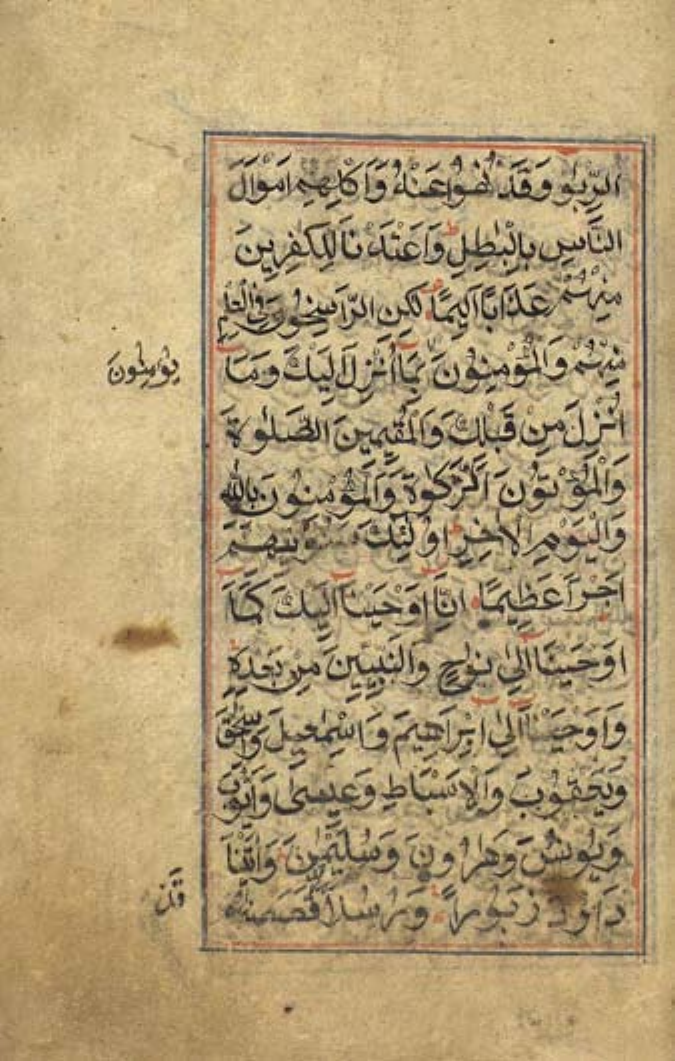 الرِّبٰو وَقَدْ نُهُوْا عَنْهُ وَاَكْلِهِمْ اَمْوَالَ
النَّاسِ بِالْبٰطِلِ وَاَعْتَدْ نَا لِلْكٰفِرِيْنَ
مِنْهُمْ عَذَابًا اَلِيْمًا لٰكِنِ الرَّاسِخُوْنَ فِي الْعِلْمِ
مِنْهُمْ وَالْمُؤْمِنُوْنَ بِمَآ اُنْزِلَ اِلَيْكَ وَمَآ
يُؤْمِنُوْنَ
اُنْزِلَ مِنْ قَبْلِكَ وَالْمُقِيْمِيْنَ الصَّلٰوةَ
وَالْمُؤْتُوْنَ الزَّكٰوةَ وَالْمُؤْمِنُوْنَ بِاللّٰهِ
وَالْيَوْمِ الْاٰخِرِ اُولٰٓئِكَ سَنُؤْتِيْهِمْ
اَجْرًا عَظِيْمًا اِنَّآ اَوْحَيْنَآ اِلَيْكَ كَمَآ
اَوْحَيْنَآ اِلٰى نُوْحٍ وَالنَّبِيّٖنَ مِنْ بَعْدِهٖ
وَاَوْحَيْنَآ اِلٰٓى اِبْرٰهِيْمَ وَاِسْمٰعِيْلَ وَاِسْحٰقَ
وَيَعْقُوْبَ وَالْاَسْبَاطِ وَعِيْسٰى وَاَيُّوْبَ
وَيُوْنُسَ وَهَارُوْنَ وَسُلَيْمٰنَ وَاٰتَيْنَا
دَاوٗدَ زَبُوْرًا وَرُسُلًا قَصَصْنٰهُمْ
قَدْ